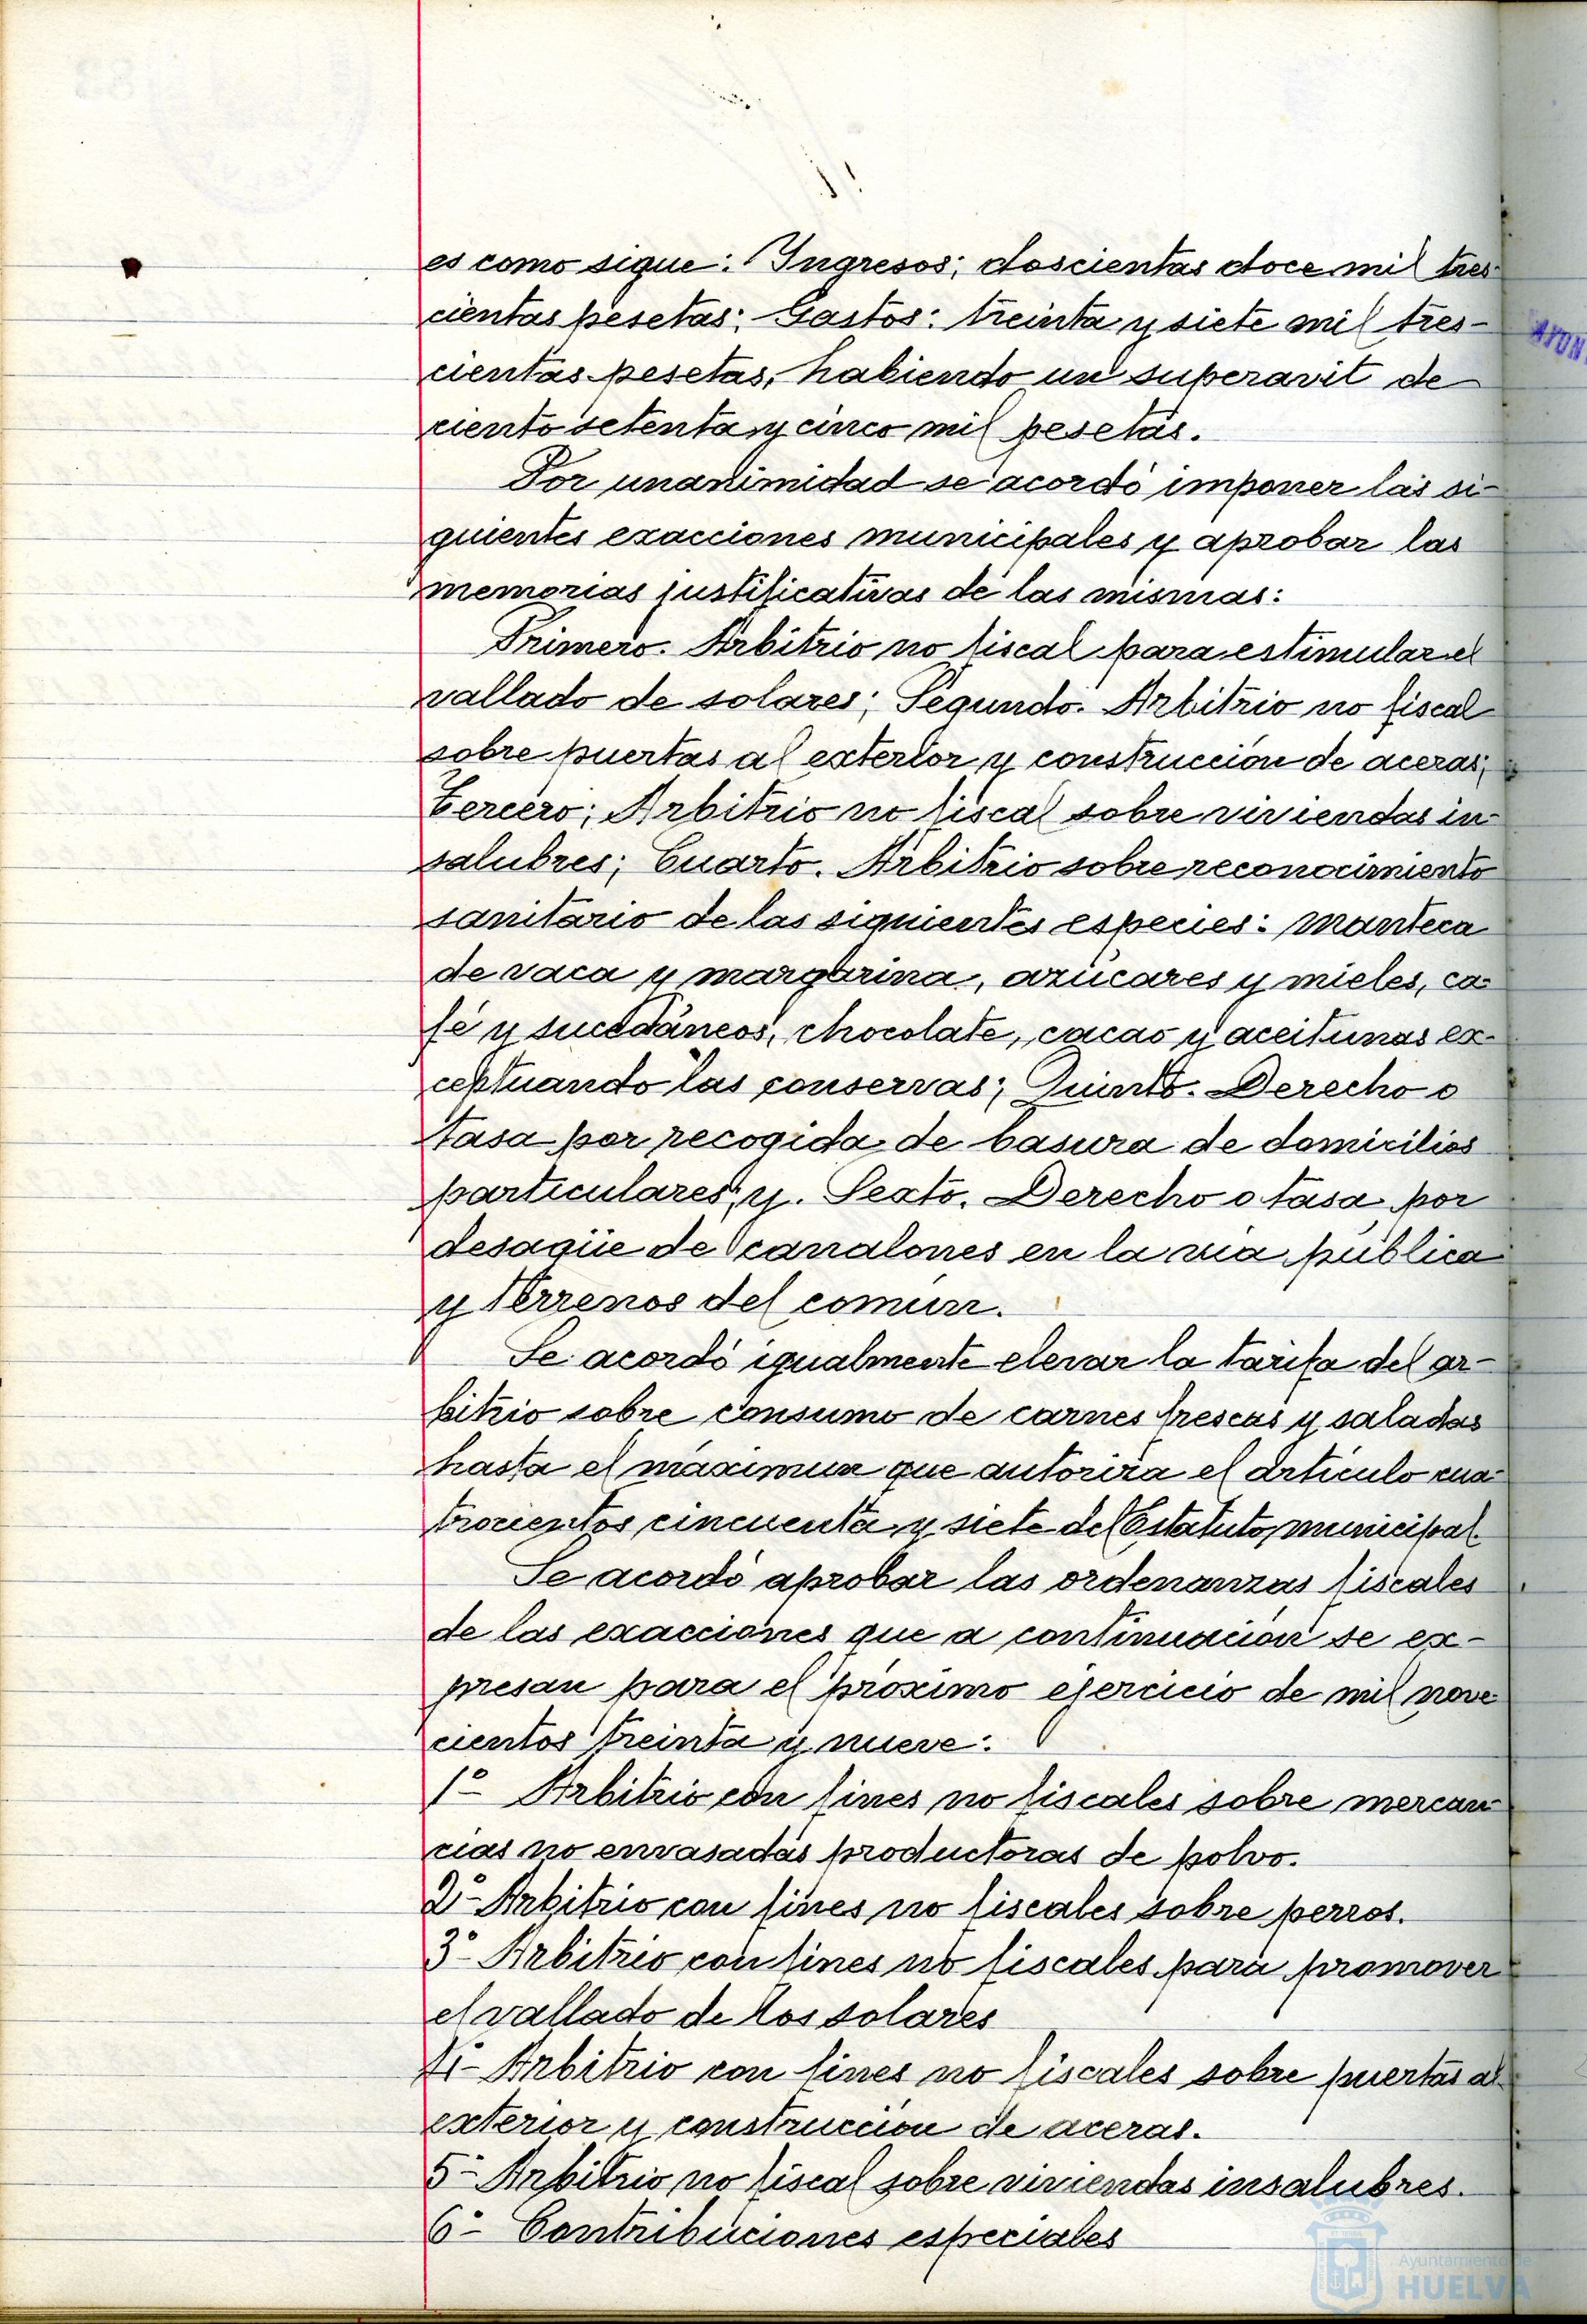 es como sigue: Ingresos; doscientas doce mil tres-
cientas pesetas: Gastos: treinta y siete mil tres-
cientas pesetas, habiendo un superavit de
ciento setenta y cinco mil pesetas.
Por unanimidad se acordó imponer las si-
guientes exacciones municipales y aprobar las
memorias justificativas de las mismas:
Primero. Arbitrio no fiscal para estimular el
vallado de solares; Segundo. Arbitrio no fiscal
sobre puertas al exterior y construcción de aceras;
Tercero; Arbitrio no fiscal sobre viviendas in-
salubres; Cuarto. Arbitrio sobre reconocimiento
sanitario de las siguientes especies: manteca
de vaca y margarina, azúcares y mieles, ca-
fé y sucedáneos, chocolate, cacao y aceitunas ex-
ceptuando las conservas; Quinto. Derecho o
tasa por recogida de basura de domicilios
particulares; y. Sexto. Derecho o tasa por
desagüe de canalones en la via pública
y terrenos del común.
Se acordó igualmente elevar la tarifa del ar-
bitrio sobre consumo de carnes frescas y saladas
hasta el máximun que autoriza el artículo cua-
trocientos cincuenta y siete del Estatuto municipal.
Se acordó aprobar las ordenanzas fiscales
de las exacciones que a continuación se ex-
presan para el próximo ejercicio de mil nove
cientos treinta y nueve:
1º- Arbitrio con fines no fiscales sobre mercan-
cias no envasadas productoras de polvo.
2º- Arbitrio con fines no fiscales sobre perros.
3º- Arbitrio con fines no fiscales para promover
el vallado de los solares
4º- Arbitrio con fines no fiscales sobre puertas al
exterior y construcción de aceras.
5º- Arbitrio no fiscal sobre viviendas insalubres.
6º- Contribuciones especiales
AYUN
83
Ayuntamiento de
HUELVA